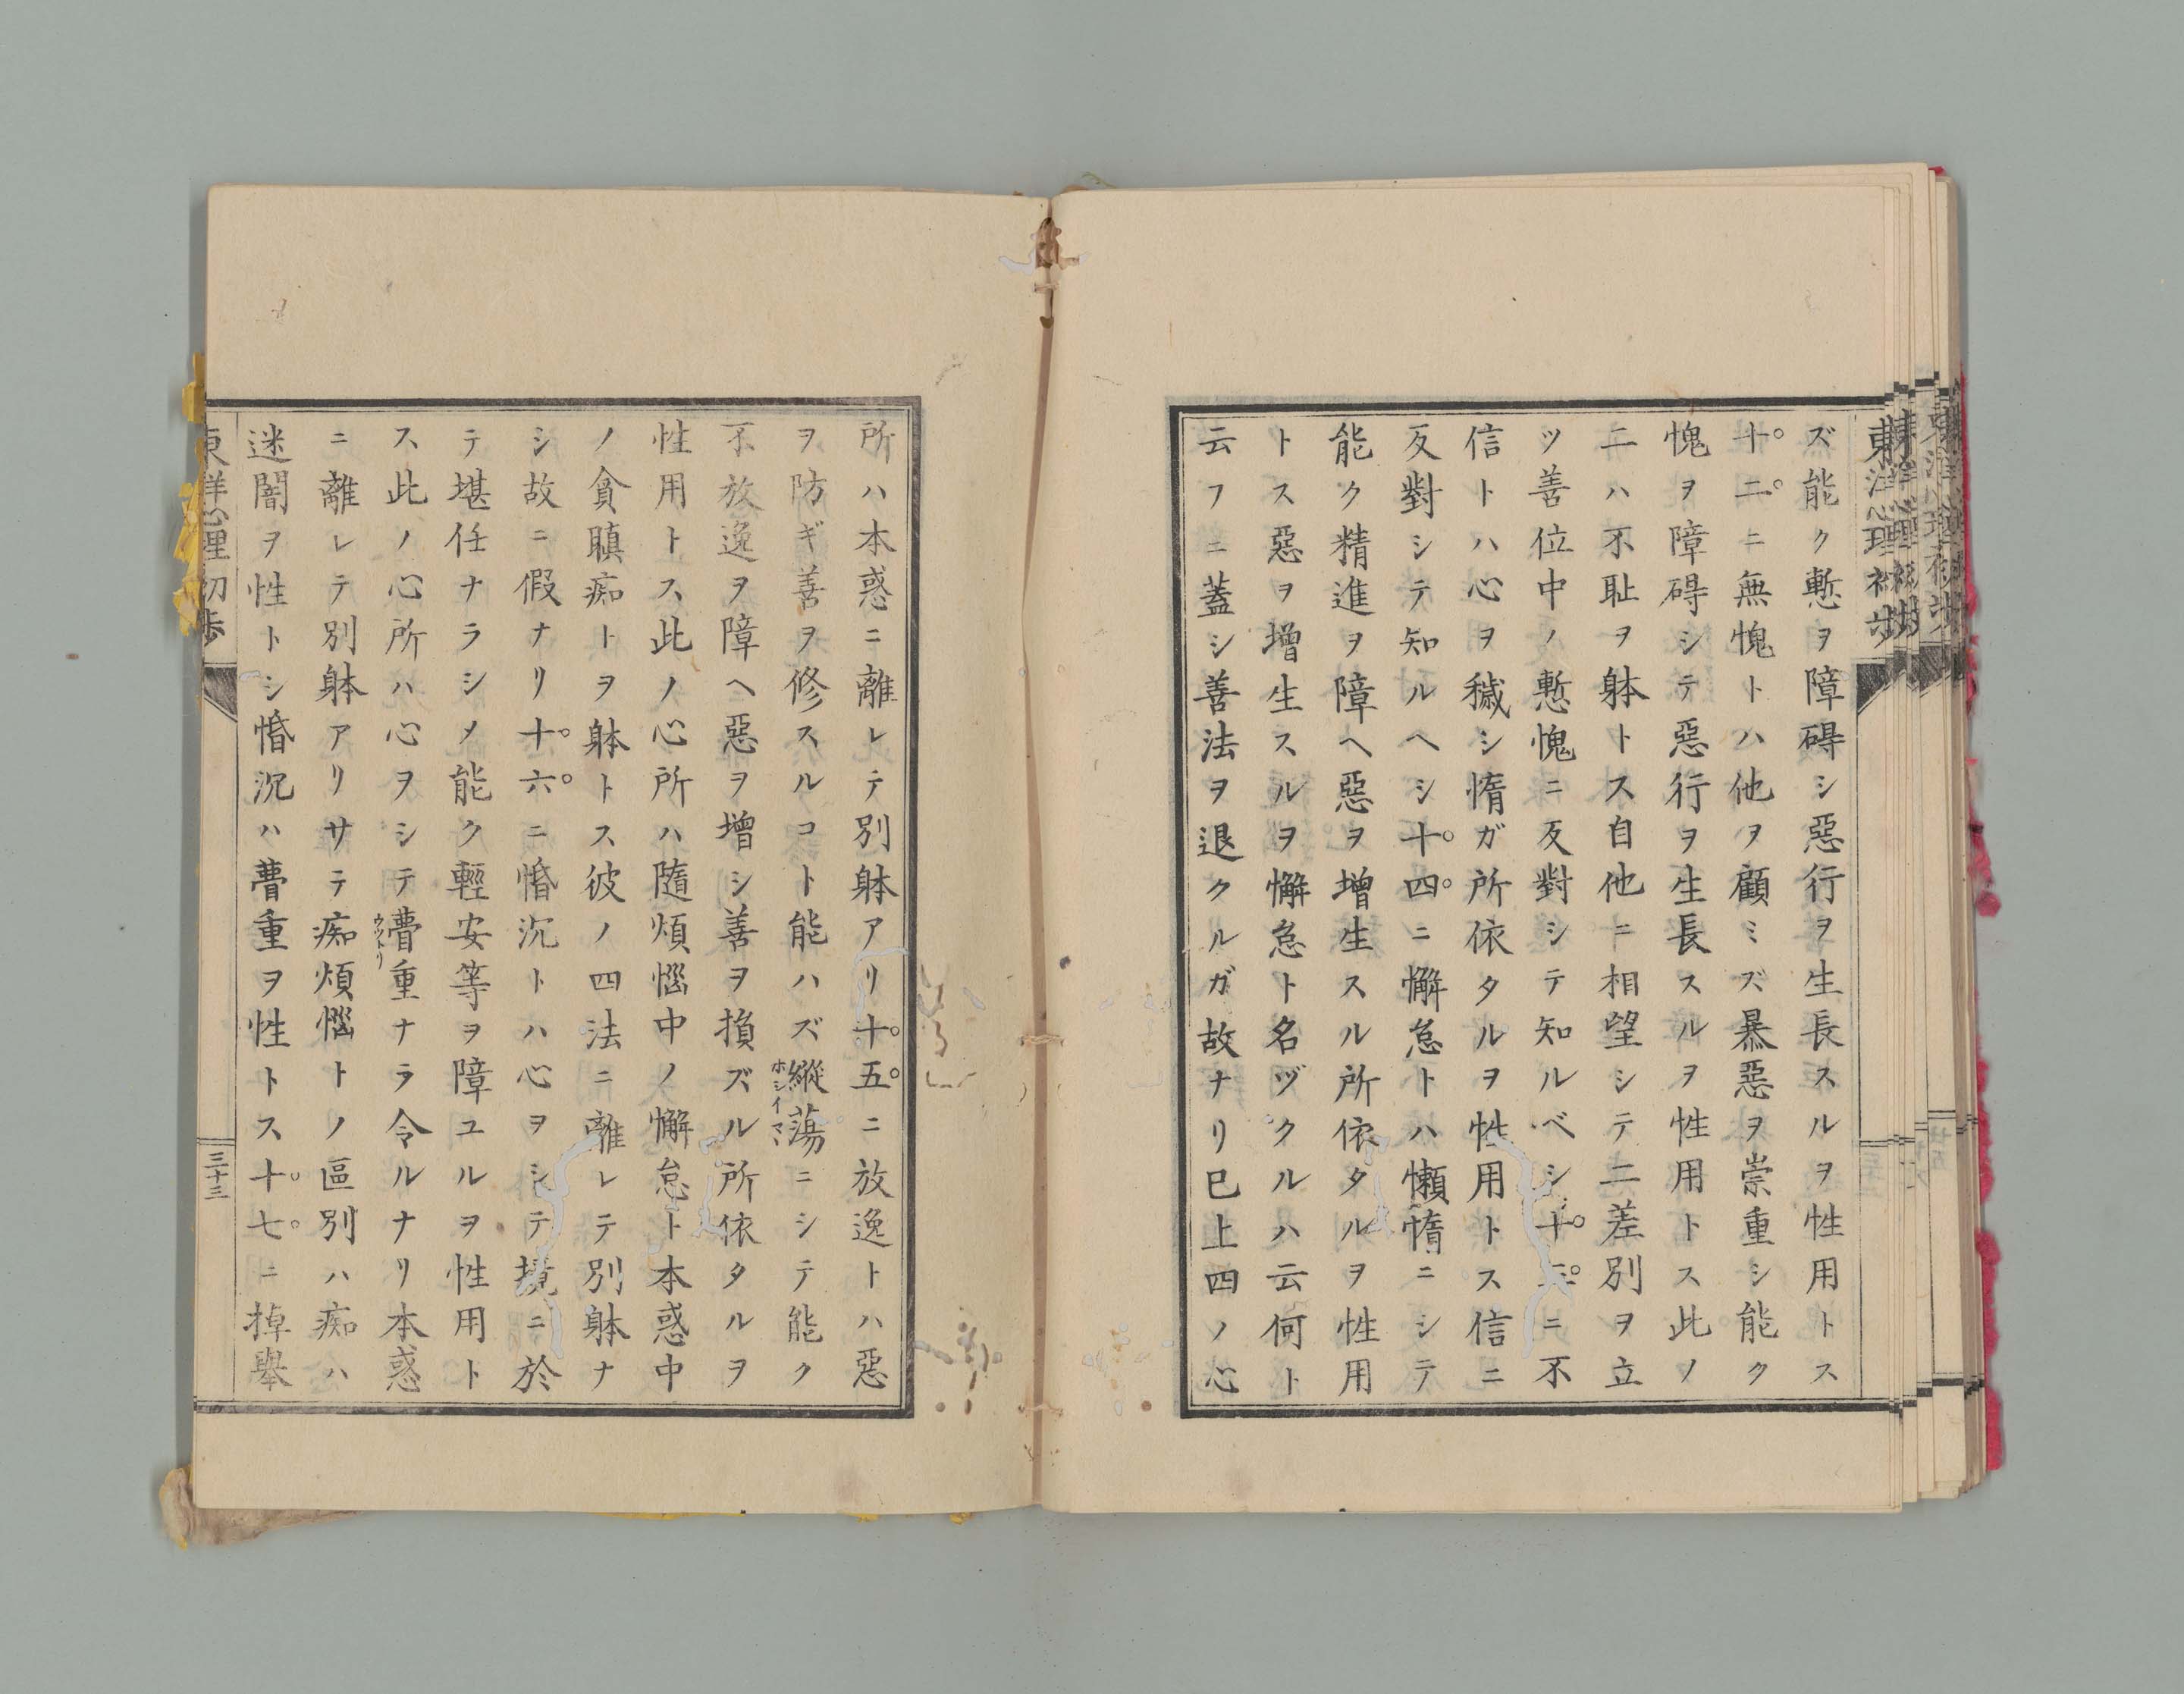 ズ能ク慙ヲ障碍シ惡行ヲ生長スルヲ性用トス
十二ニ無愧トハ他ヲ顧ミズ暴惡ヲ崇重シ能ク
愧ヲ障碍シテ惡行ヲ生長スルヲ性用トス此ノ
二ハ不耻ヲ躰トス自他ニ相望シテ二差別ヲ立
ツ善位中ノ慙愧ニ反對シテ知ルベシ十三ニ不
信トハ心ヲ穢シ惰ガ所依タルヲ性用トス信ニ
反對シテ知ルヘシ十四ニ懈怠トハ懶惰ニシテ
能ク精進ヲ障ヘ惡ヲ增生スル所依タルヲ性用
トス惡ヲ增生スルヲ懈怠ト名ヅクルハ云何ト
云フニ蓋シ善法ヲ退クルガ故ナリ已上四ノ心
所ハ本惑ニ離レテ別躰アリ十五ニ放逸トハ惡
ヲ防ギ善ヲ修スルコト能ハズ縱蕩ニシテ能ク
ホシイマヽ
不放逸ヲ障ヘ惡ヲ增シ善ヲ損ズル所依タルヲ
性用トス此ノ心所ハ隨煩惱中ノ懈怠ト本惑中
ノ貪瞋痴トヲ躰トス彼ノ四法ニ離レテ別躰ナ
シ故ニ假ナリ十六ニ惛沉トハ心ヲシテ境ニ於
テ堪任ナラシメ能ク輕安等ヲ障ユルヲ性用ト
ス此ノ心所ハ心ヲシテ瞢重ナラ令ルナリ本惑
ウツトリ
ニ離レテ別躰アリサテ痴煩惱トノ區別ハ痴ハ
迷闇ヲ性トシ惛沉ハ瞢重ヲ性トス十七ニ掉擧
東洋心理初步
三十三